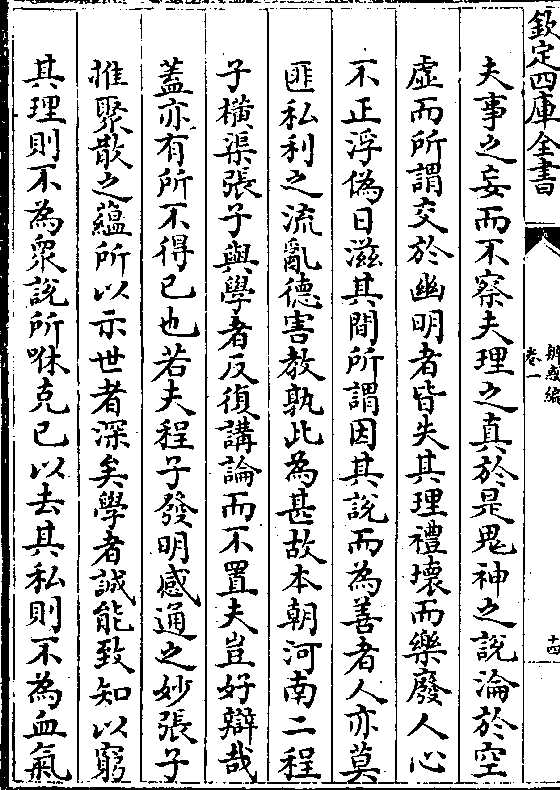 欽定四庫全書
辨惑編
卷一
十四
夫事之妄而不察夫理之真於是鬼神之說淪於空
虛而所謂交於幽明者皆失其理禮壞而樂廢人心
不正浮偽日滋其間所謂因其說而為善者人亦莫
匪私利之流亂德害教孰此為甚故本朝河南二程
子橫渠張子與學者反復講論而不置夫豈好辯哉
蓋亦有所不得已也若夫程子發明感通之妙張子
推聚散之蘊所以示世者深矣學者誠能致知以窮
其理則不為衆說所咻克己以去其私則不為血氣